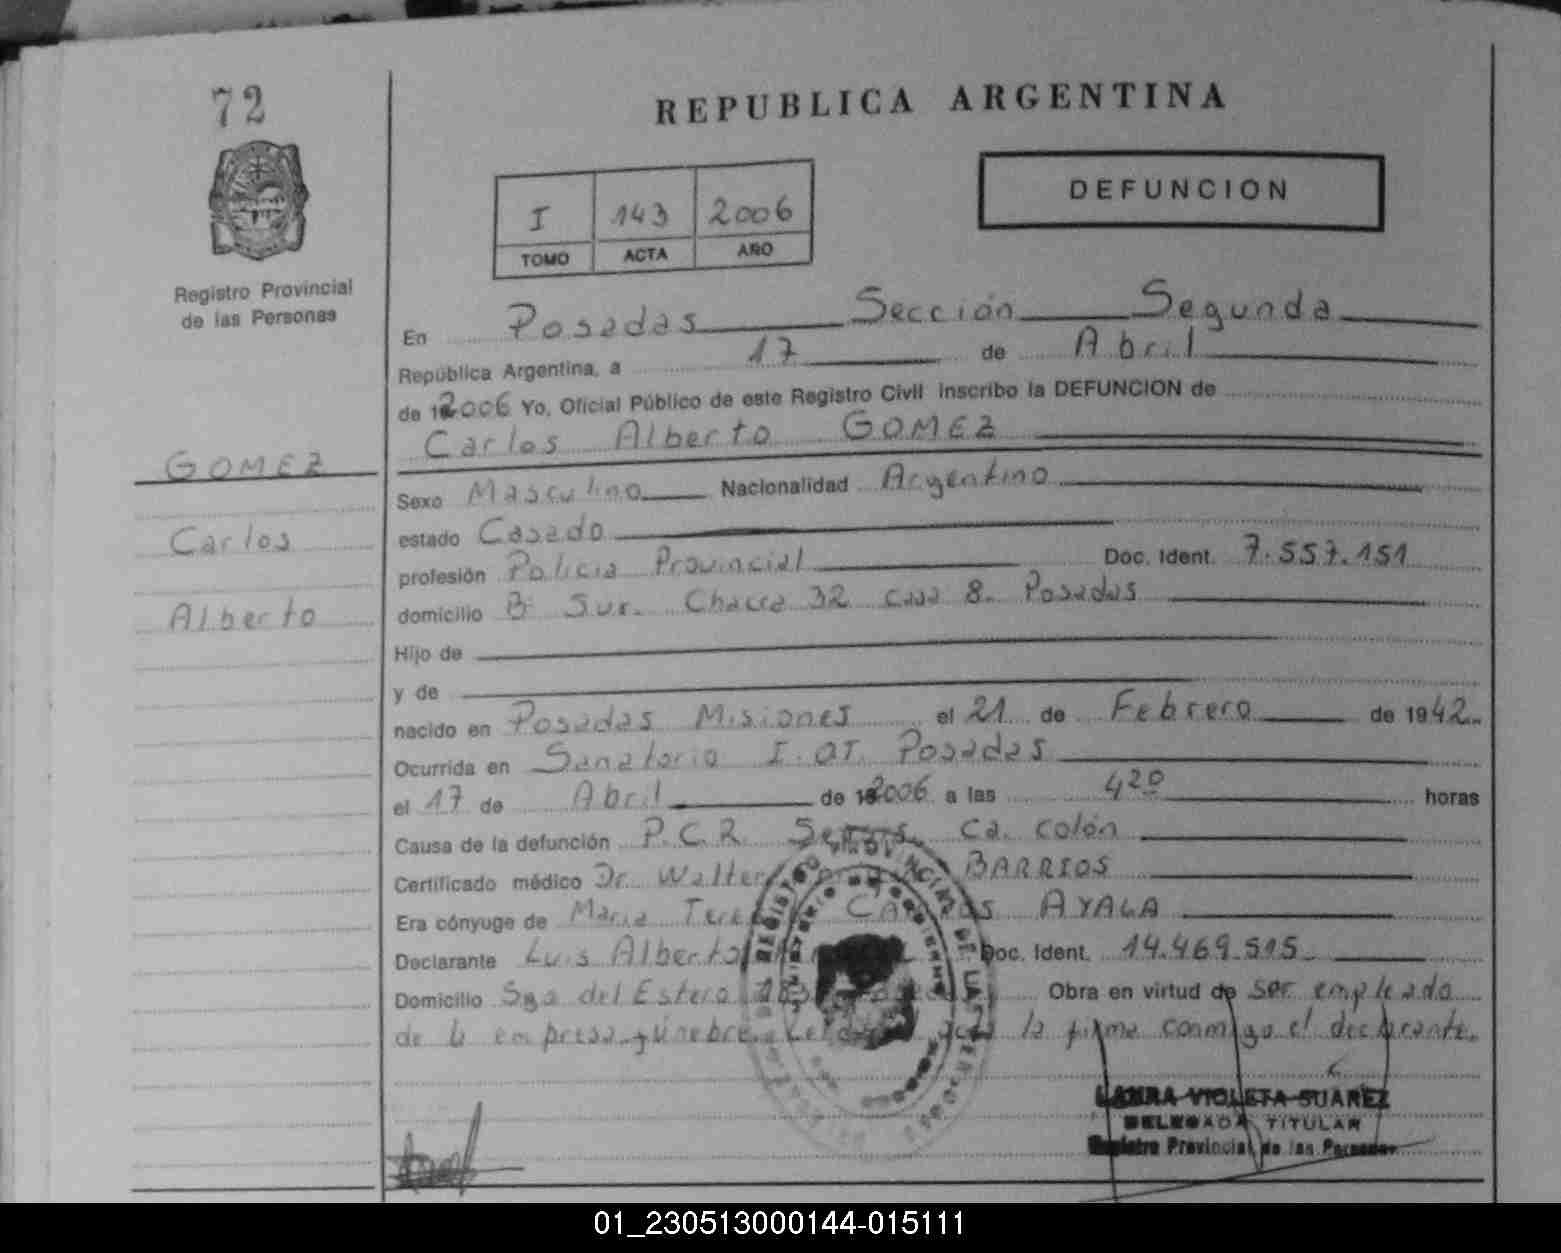 72
REPUBLICA ARGENTINA
DEFUNCION
I 143 2006
TOMO ACTA AÑO
Registro Provincial
de las Personas
En Posadas Sección Segunda
República Argentina, a 17 de Abril
de 2006 Yo, Oficial Público de este Registro Civil inscribo la DEFUNCION de
Carlos Alberto GOMEZ
GOMEZ
Carlos
Alberto
Sexo Masculino Nacionalidad Argentino
estado Casado
profesión Policia Provincial Doc. Ident. 7.557.151
domicilio Bº Sur. Chacra 32 casa 8. Posadas
Hijo de
y de
nacido en Posadas Misiones el 21 de Febrero de 1942
Ocurrida en Sanatorio I.OT. Posadas
el 17 de Abril de 2006 a las 4 20 horas
Causa de la defunción P.C.R. Sepsis. Ca. colón
Certificado médico Dr. Walter BARRIOS
Era cónyuge de Maria AYALA
Declarante Luis Alberto Doc. Ident. 14.469.515
Domicilio Sgo del Estero Obra en virtud de ser empleado
de la empresa fúnebre la firma conmigo el declarante.
LAURA VIOLETA SUAREZ
DELEGADA TITULAR
Registro Provincial de las Personas
01_230513000144-015111